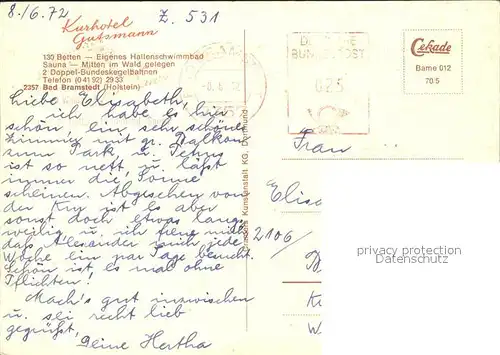 8/6.72
Z. 531
Kurhotel
Gutsmann
130 Betten — Eigenes Hallenschwimmbad
Sauna — Mitten im Wald gelegen
2 Doppel-Bundeskegelbahnen
Telefon (04192) 2933
2357 Bad Bramstedt (Holstein)
Liebe Elisabeth,
ich habe es hier
schön, ein sehr schönes
Zimmer mit gr. Balkon
zum Park u. Petrus
ist so nett u. läßt
immer die Sonne
scheinen. Abgesehen von
der Kur ist es aber
sonst doch etwas lang-
weilig u. ich freue mich
daß Alexander mich jede
Woche ein par Tage besucht.
Schön ist, es mal ohne
Pflichten!
Mach's gut inzwischen
u. sei recht lieb
gegrüßt,
Deine Hertha
Kunstanstalt KG, Dortmund
DEUTSCHE
BUNDESPOST
025
Cekade
Bame 012
70/5
Frau
Elisa
2106
privacy protection
Datenschutz